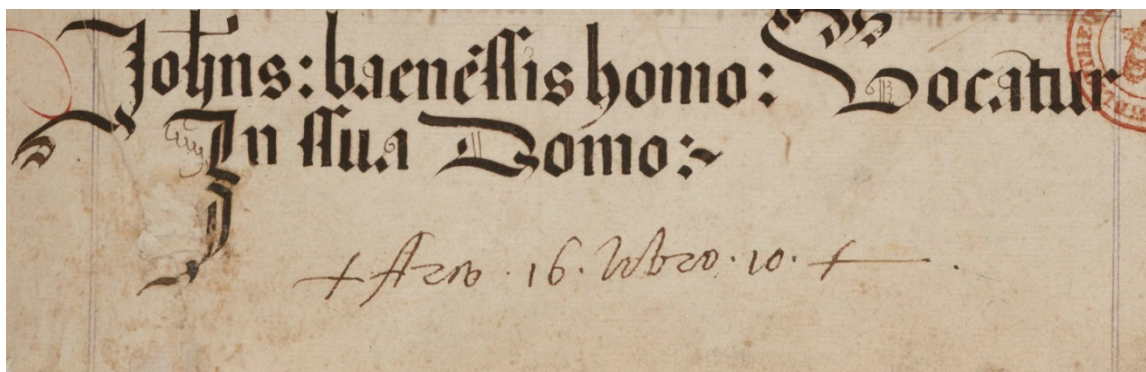 Johns: baenēssis homo: Vocatur
In ssua Domo:~
+ Arco . 16. libro . 10. +